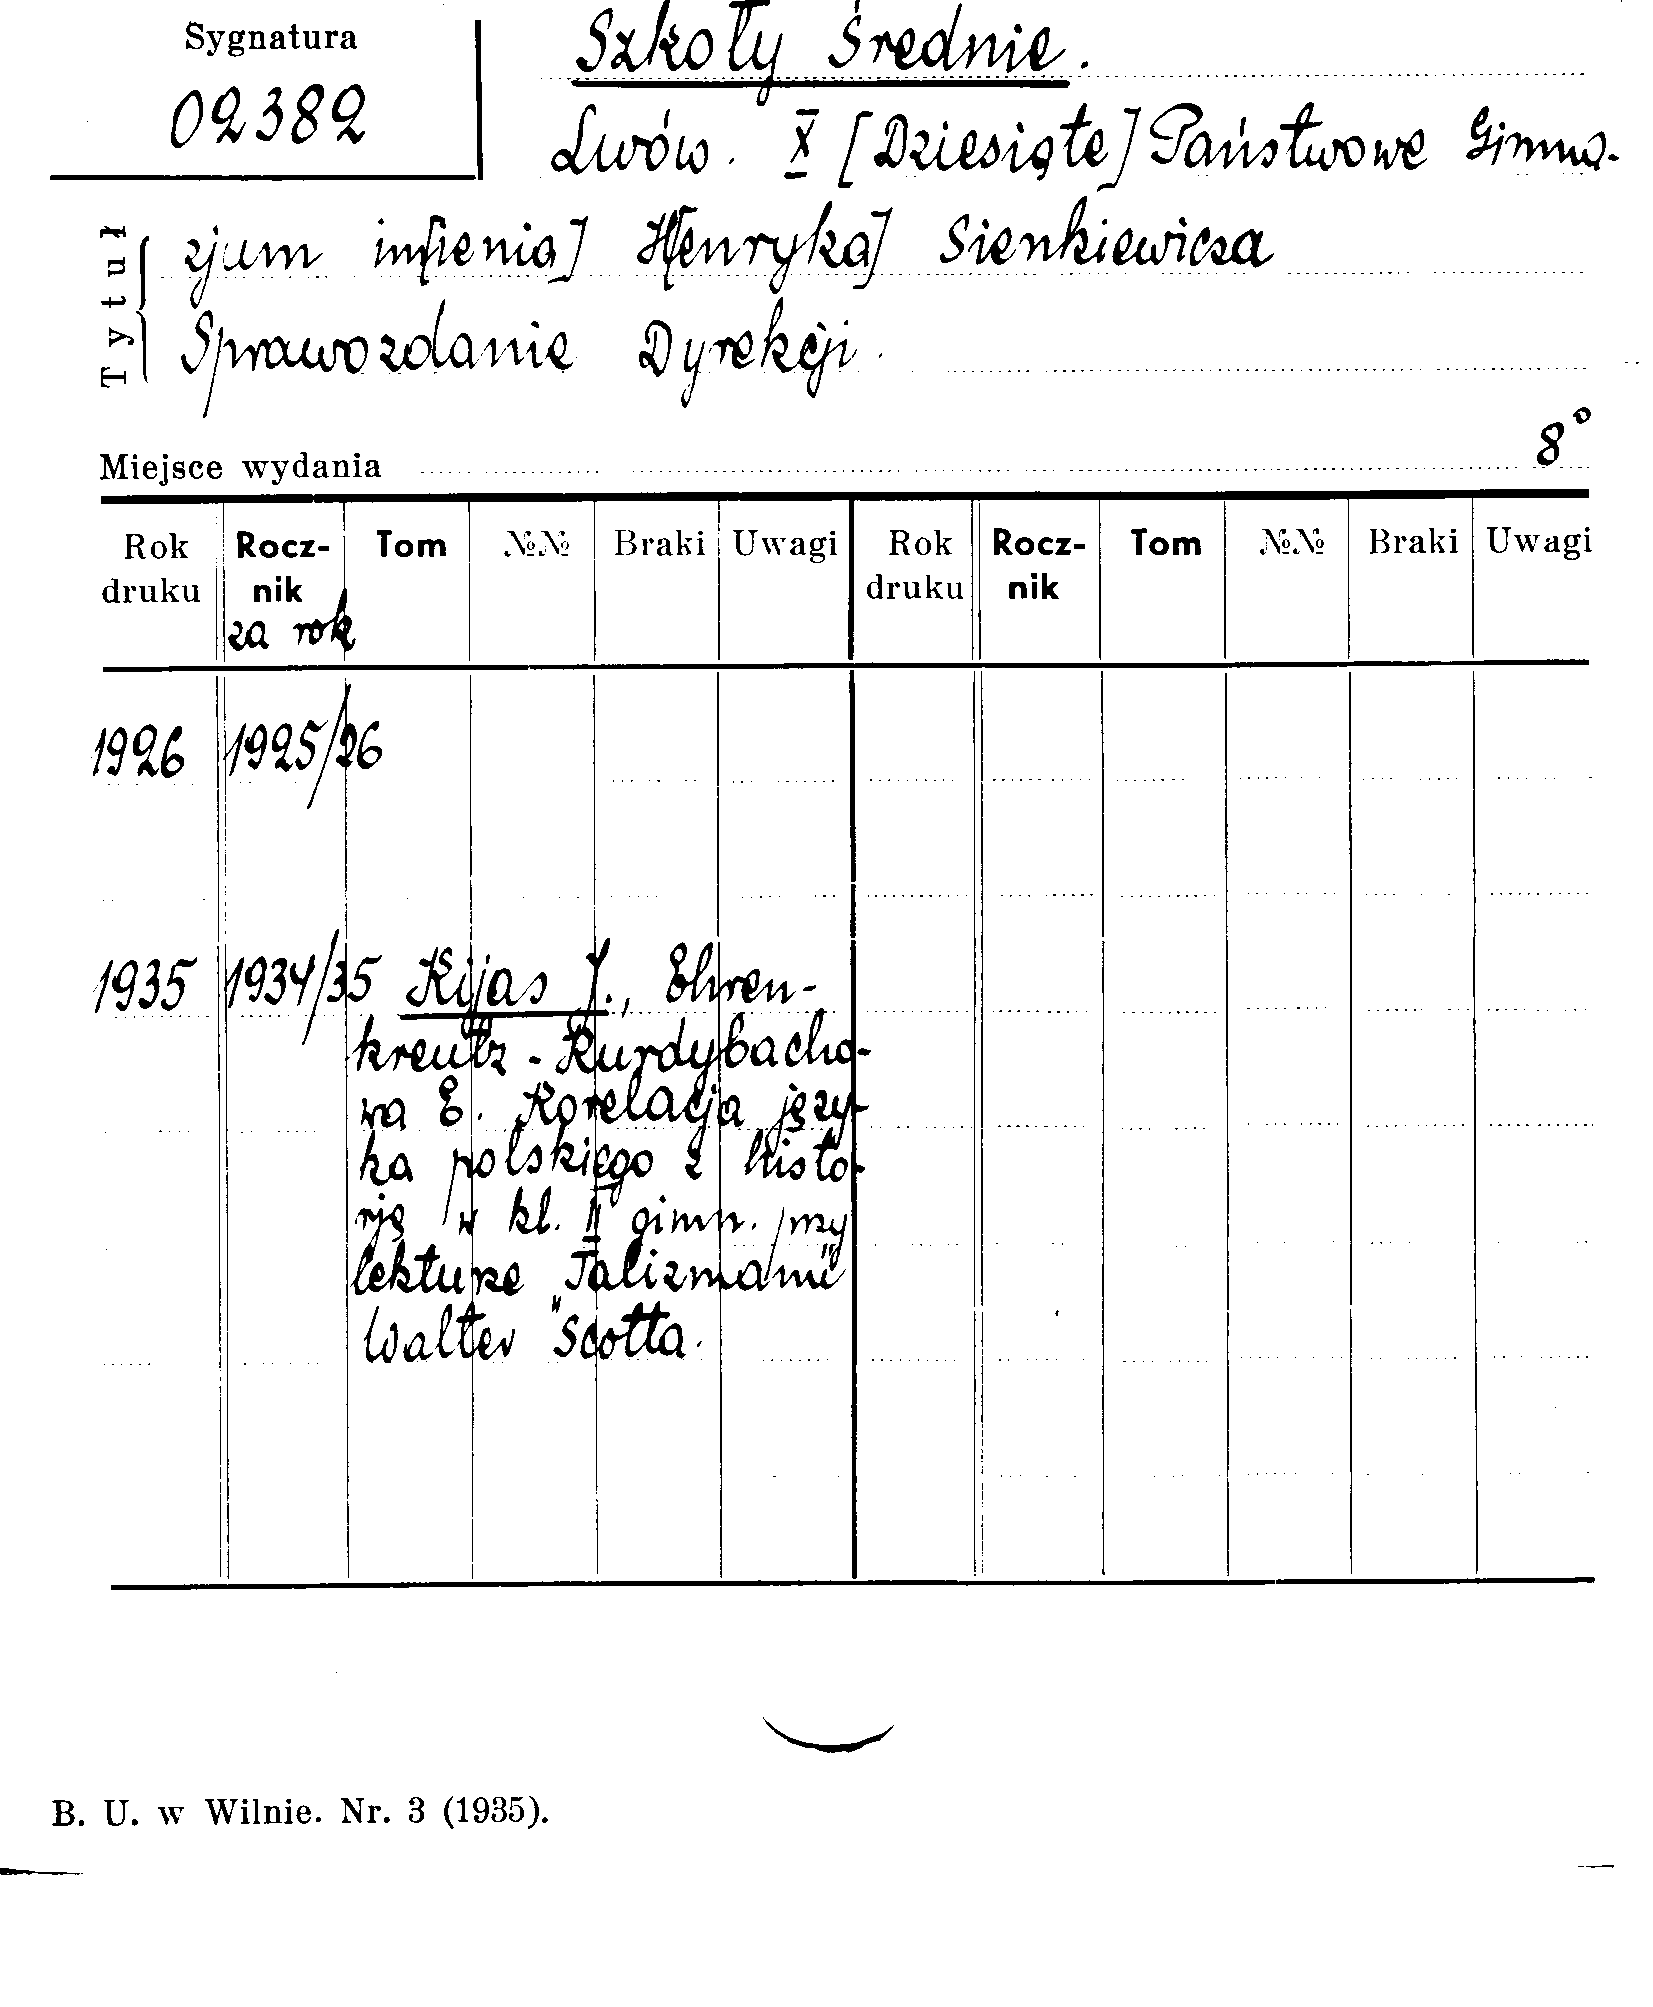 Sygnatura
02382
Szkoły Średnie.
Lwów. X [Dziesiąte] Państwowe Gimna-
zjum im[ienia] H[enryka] Sienkiewicza
Sprawozdanie Dyrekcji.
Tytuł
8°
Miejsce wydania
Rok druku Rocz-nik Tom №№ Braki Uwagi Rok druku Rocz-nik Tom №№ Braki Uwagi
za rok
1926 1925/26
1935 1934/35 Kijas J., Ehren-
kreutz - Kurdybacho-
wa E. Korelacja języ-
ka polskiego z histo-
rją w kl. II gimn. przy
lekturze "Talizmanu"
Walter "Scotta.
B. U. w Wilnie. Nr. 3 (1935).